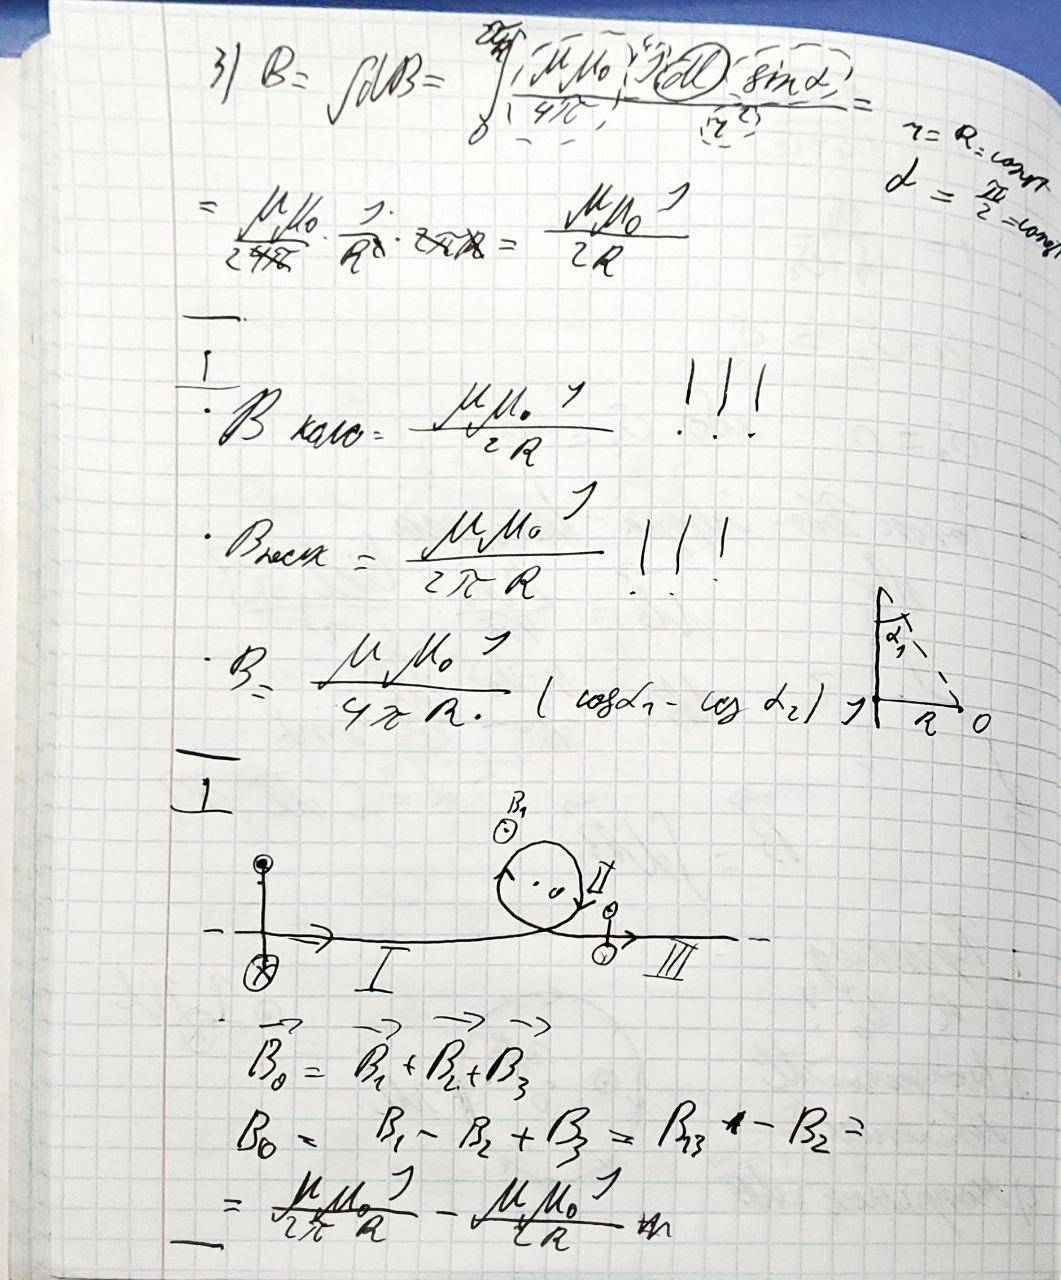 3) B = ∫dB = ∫₀^2πR (μμ₀ / 4π) (I dl sin α / r²) =
r = R = const
α = π/2 = const
= μμ₀/4π · I/R² · 2πR = μμ₀ I / 2R
I
· B кало = μμ₀ I / 2R !!!
· B беск = μμ₀ I / 2πR !!!
· B = μμ₀ I / 4πR · (cos α₁ - cos α₂)
α₁
I R O
I
B₁
II
o
I III
B⃗₀ = B⃗₁ + B⃗₂ + B⃗₃
B₀ = B₁ - B₂ + B₃ = B₁₃ - B₂ =
= μμ₀ I / 2πR - μμ₀ I / 2R